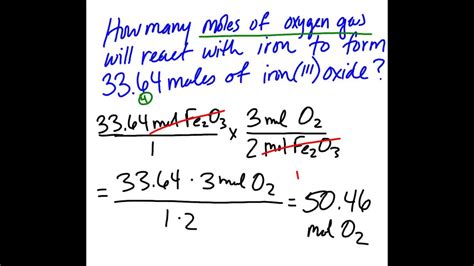 How many moles of oxygen gas
will react with iron to form
33.64 moles of iron(III) oxide?
4
33.64 mol Fe₂O₃ x 3 mol O₂
1 2 mol Fe₂O₃
= 33.64 · 3 mol O₂ = 50.46
1 · 2 mol O₂